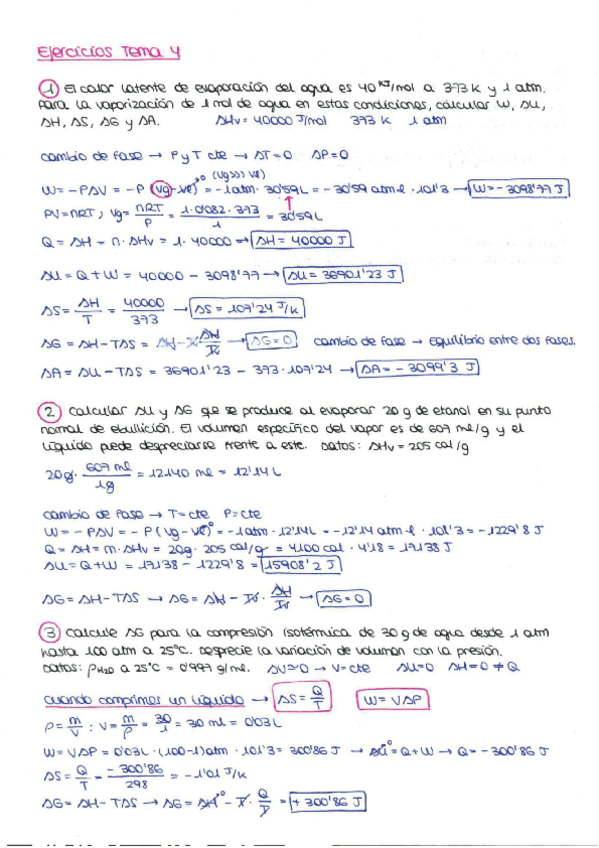 Ejercicios Tema 4
① El calor latente de evaporación del agua es 40 KJ/mol a 373 K y 1 atm.
Para la vaporización de 1 mol de agua en estas condiciones, calcular W, ΔU,
ΔH, ΔS, ΔG y ΔA. ΔHv = 40000 J/mol 373 K 1 atm
cambio de fase → P y T cte → ΔT=0 ΔP=0
W = -PΔV = -P (Vg-Vl)^0 (Vg>>> Vl) = -1 atm · 30'59L = -30'59 atm·l · 101'3 → W = -3098'77 J
PV=nRT ; Vg = nRT/P = 1·0'082·373/1 = 30'59 L
Q = ΔH = n·ΔHv = 1·40000 → ΔH = 40000 J
ΔU = Q+W = 40000 - 3098'77 → ΔU = 36901'23 J
ΔS = ΔH/T = 40000/373 → ΔS = 107'24 J/K
ΔG = ΔH-TΔS = ΔH-T·ΔH/T → ΔG=0 cambio de fase → Equilibrio entre dos fases.
ΔA = ΔU-TΔS = 36901'23 - 373·107'24 → ΔA = -3099'3 J
② Calcular ΔU y ΔG que se produce al evaporar 20 g de etanol en su punto
normal de ebullición. El volumen específico del vapor es de 607 ml/g y el
líquido puede despreciarse frente a este. Datos: ΔHv = 205 cal/g
20g · 607 ml/1g = 12140 ml = 12'14 L
cambio de fase → T=cte P=cte
W = -PΔV = -P (Vg-Vl)^0 = -1 atm · 12'14L = -12'14 atm·l · 101'3 = -1229'8 J
Q = ΔH = m·ΔHv = 20g · 205 cal/g = 4100 cal · 4'18 = 17138 J
ΔU = Q+W = 17138 - 1229'8 = 15908'2 J
ΔG = ΔH-TΔS → ΔG = ΔH - T · ΔH/T → ΔG=0
③ Calcule ΔG para la compresión isotérmica de 30 g de agua desde 1 atm
hasta 100 atm a 25°C. Desprecie la variación de volumen con la presión.
Datos: ρH2O a 25°C = 0'997 g/ml. ΔV≃0 → V=cte ΔU=0 ΔH=0 ≠ Q
cuando comprimes un líquido → ΔS = Q/T W = VΔP
ρ = m/V ; V = m/ρ = 30/1 = 30 ml = 0'03L
W = VΔP = 0'03L · (100-1) atm · 101'3 = 300'86 J → ΔU^0 = Q+W → Q = -300'86 J
ΔS = Q/T = -300'86/298 = -1'01 J/K
ΔG = ΔH-TΔS → ΔG = ΔH^0 - T · Q/T = +300'86 J